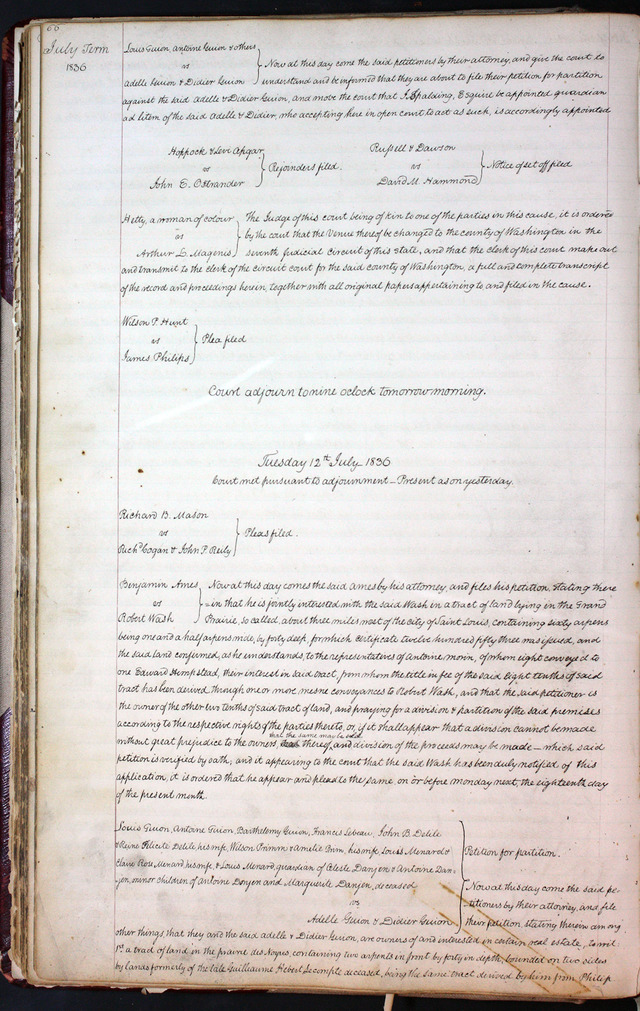 66
July Term
1836
Louis Guion, Antoine Guion & others
vs
Adelle Guion & Didier Guion
Now at this day come the said petitioners by their attorney, and give the court to
understand and be informed that they are about to file their petition for partition
against the said Adelle & Didier Guion, and move the court that J. Spalding, Esquire be appointed guardian
ad litem of the said Adelle & Didier, who accepting here in open court to act as such, is accordingly appointed
Hoppock & Levi Apgar
vs
John E. Ostrander
Rejoinders filed.
Russell & Dawson
vs
David M. Hammond
Notice of set off filed
Hetty, a woman of colour
vs
Arthur L. Magenes
The Judge of this court being of kin to one of the parties in this cause, it is ordered
by the court that the Venue thereof be changed to the county of Washington in the
seventh judicial circuit of this state, and that the clerk of this court make out
and transmit to the clerk of the circuit court for the said county of Washington, a full and complete transcript
of the record and proceedings herein, together with all original papers appertaining to and filed in the cause.
Wilson P. Hunt
vs
James Philips
Plea filed
Court adjourn to nine oclock tomorrow morning.
Tuesday 12th July 1836
Court met pursuant to adjournment - Present as on yesterday.
Richard B. Mason
vs
Richd Cogan & John P. Reily
Pleas filed.
Benjamin Ames
vs
Robert Wash
Now at this day comes the said Ames by his attorney, and files his petition, stating there
=in that he is jointly interested with the said Wash in a tract of land lying in the Grand
Prairie, so called, about three miles west of the city of Saint Louis, containing sixty arpens
being one and a half arpens wide, by forty deep, for which certificate twelve hundred fifty three was issued, and
the said land confirmed, as he understands, to the representatives of Antoine Morin, of whom eight conveyed to
one Edward Hempstead, their interest in said tract, from whom the title in fee of the said Eight tenths of said
tract has been derived through one or more mesne conveyances to Robert Wash, and that the said petitioner is
the owner of the other two tenths of said tract of land, and praying for a division & partition of the said premises
according to the respective rights of the parties thereto, or, if it shall appear that a division cannot be made
that the same may be sold
without great prejudice to the owners, thereof, and division of the proceeds may be made - which said
petition is verified by oath; and it appearing to the court that the said Wash has been duly notified of this
application, it is ordered that he appear and plead to the same, on or before monday next, the eighteenth day
of the present month.
Louis Guion, Antoine Guion, Barthelemy Guion, Francis Lebeau, John B. Delile
& Reine Felicite Delile, his wife, Wilson Primm & Amelie Prim, his wife, Louis Menard &
Claire Rose Menard, his wife, & Louis Menard, guardian of Celeste Danjen & Antoine Dan-
jen, minor children of Antoine Danjen and Marguerite Danjen, deceased
vs
Adelle Guion & Didier Guion
Petition for partition.
Now at this day come the said pe-
titioners by their attorney, and file
their petition, stating therein among
other things, that they and the said Adelle & Didier Guion, are owners of and interested in certain real estate, to wit
1st a tract of land in the prairie des Noyes, containing two arpents in front by forty in depth, bounded on two sides
by lands formerly of the late Guilleaume Hebert Lecompte deceased, being the same tract derived by him from Philip